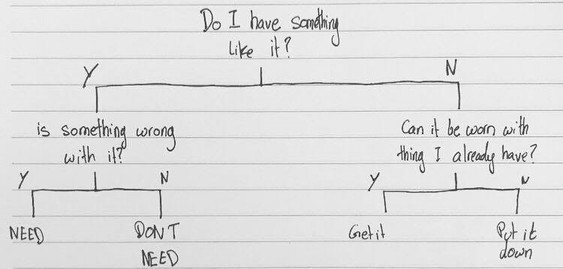 Do I have something
like it?
Y
N
is something wrong
with it?
Can it be worn with
thing I already have?
Y
N
Y
N
NEED
DON'T
NEED
Get it
Put it
down